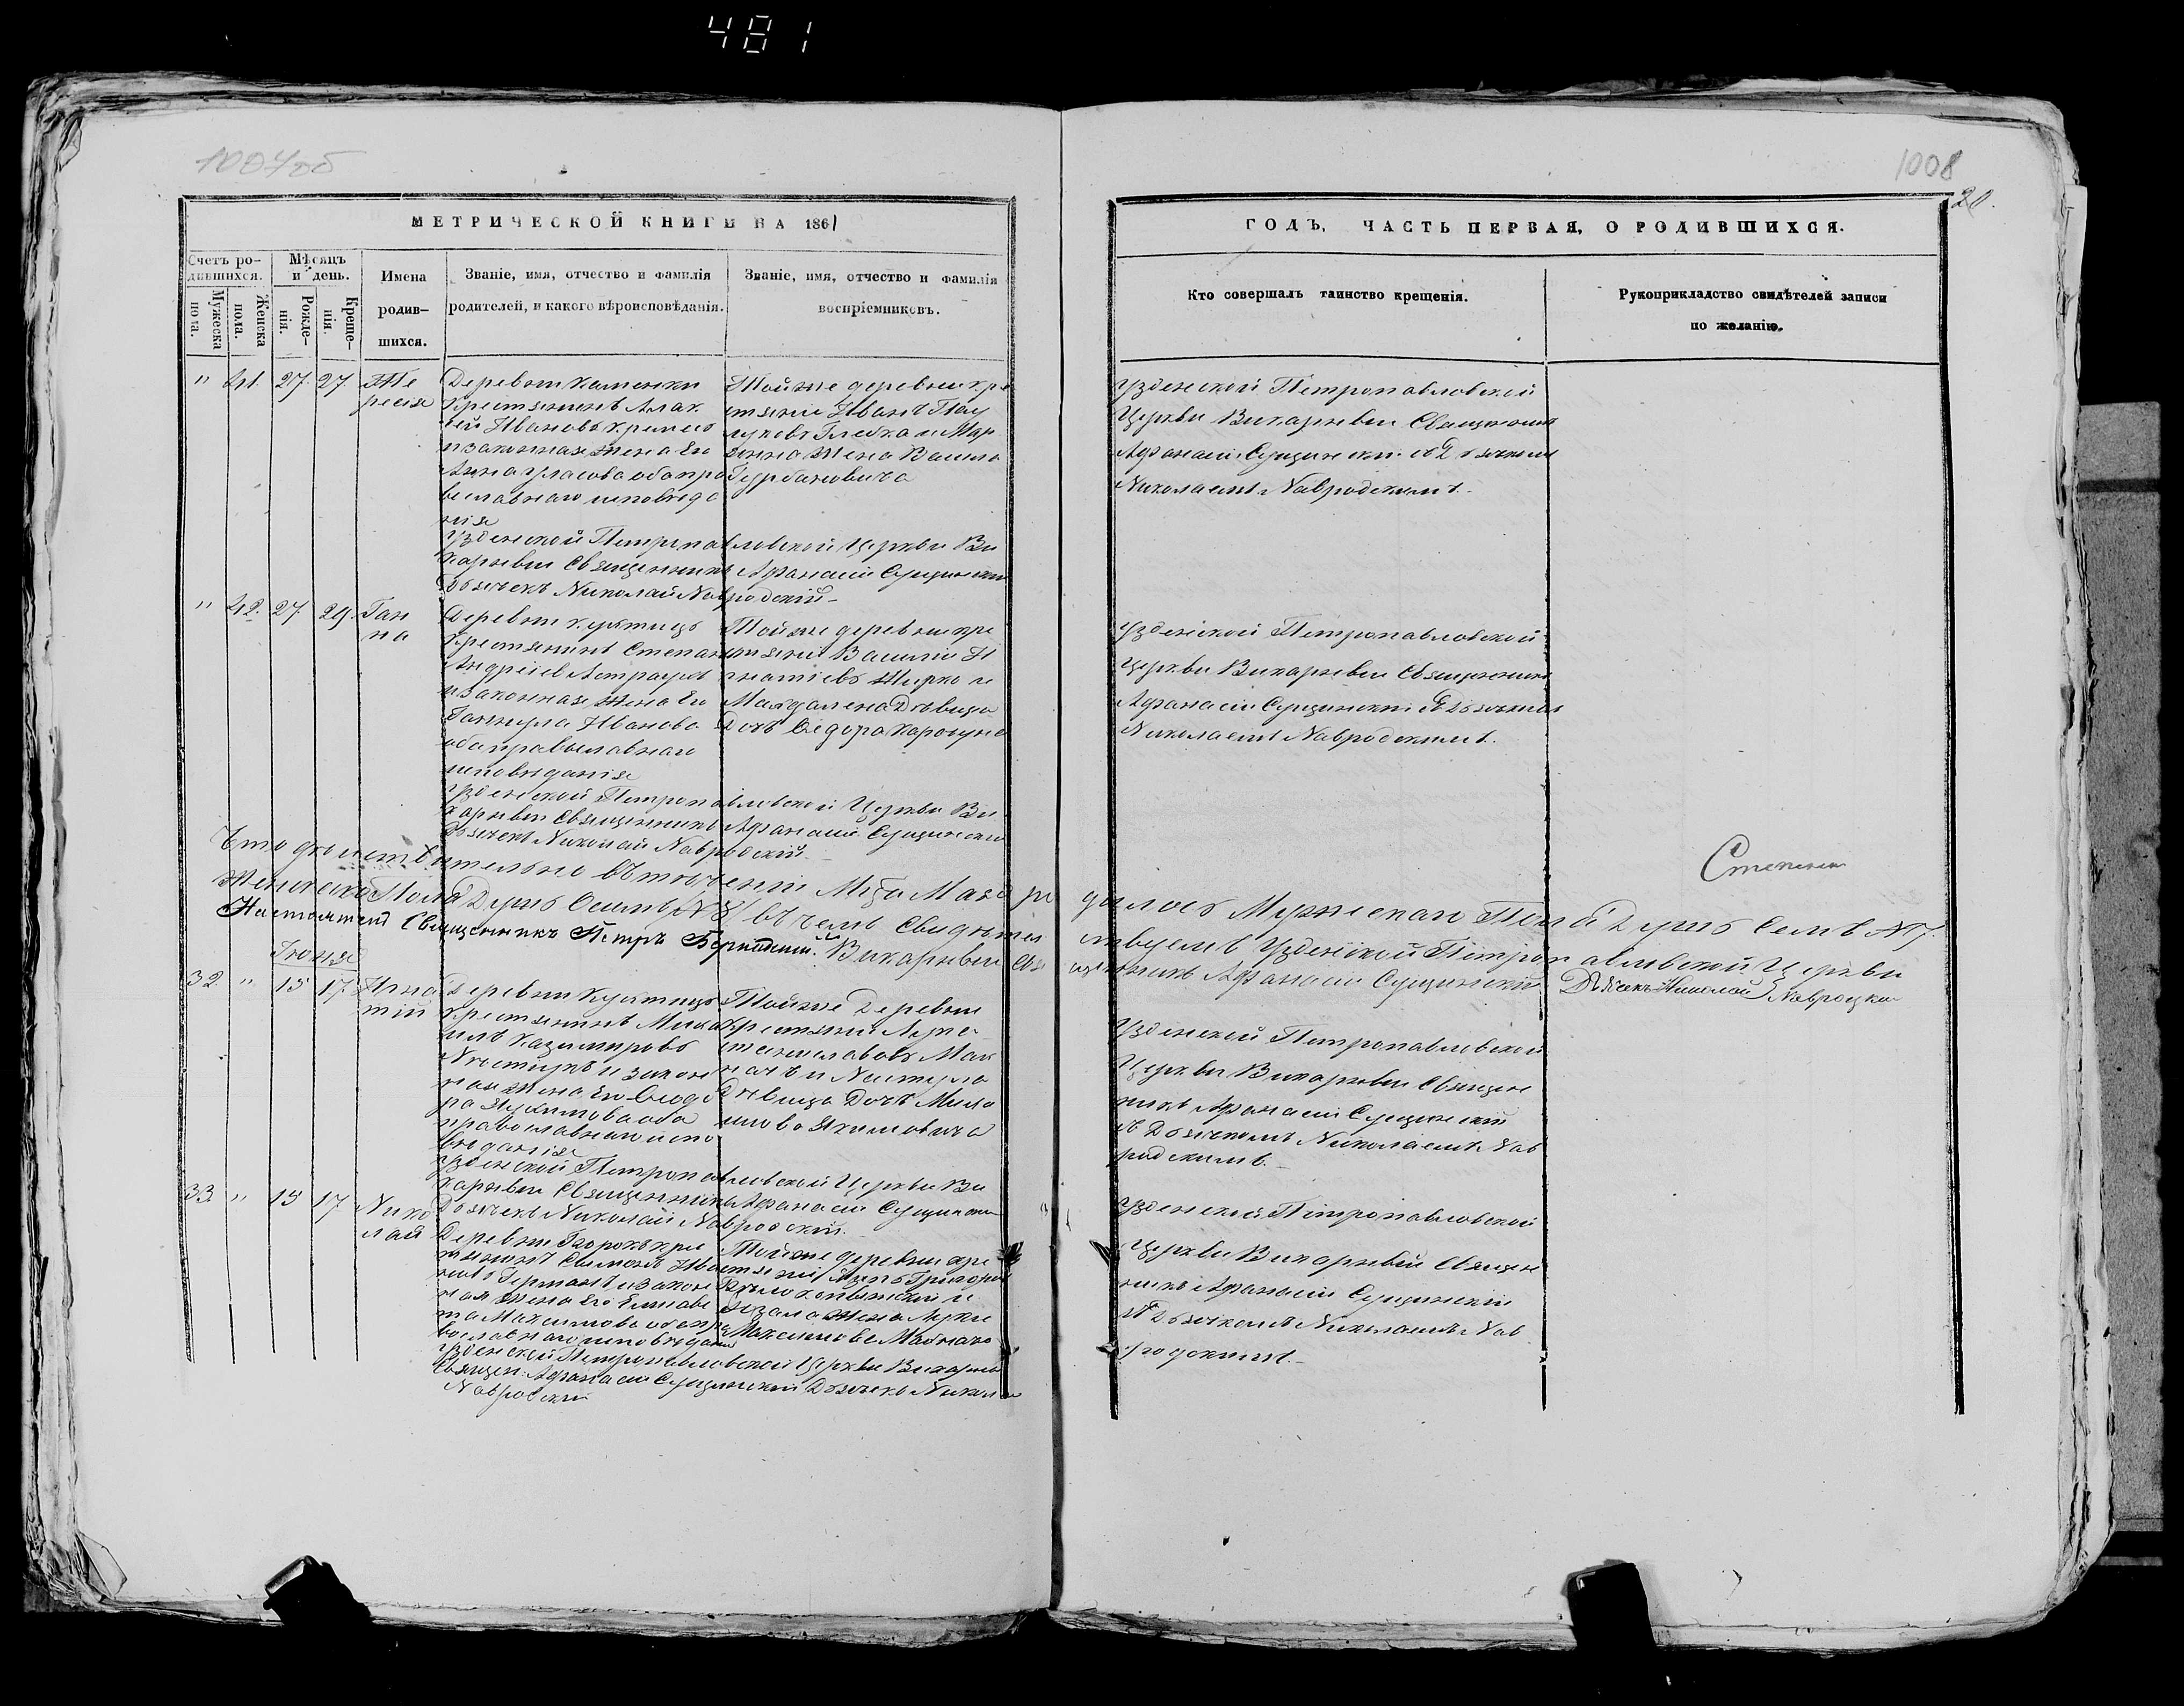 481
1007об
1008
20.
МЕТРИЧЕСКОЙ КНИГИ НА 1861
Счетъ родившихся.
Мѣсяцъ и день.
Мужеска пола.
Женска пола.
Рожденія.
Крещенія.
Имена родившихся.
Званіе, имя, отчество и фамилія
родителей, и какого вѣроисповѣданія.
Званіе, имя, отчество и фамилія
воспріемниковъ.
ГОДЪ, ЧАСТЬ ПЕРВАЯ, О РОДИВШИХСЯ.
Кто совершалъ таинство крещенія.
Рукоприкладство свидѣтелей записи
по желанію.
" 41. 27. 27.
Деревни Каменки
Крестьянинъ
Ивановъ
и законная жена Его
Анна Уласова оба пра
вославнаго исповѣда
нія
Тойже деревни кре
стьяне Иванъ
жена Васила
Гурбановича
Узденской Петропавловской
Церкви Викарный Священникъ
Афанасій Сущинскій съ Дьячкомъ
Николаемъ Навродскимъ.
Узденской Петропавловской Церкви Ви
карный Священникъ Афанасій Сущинскій
Дьячекъ Николай Навродскій
" 42. 27 29. Ган
на
Деревни Кухтицъ
Крестьянинъ Степан
Андреев
и законная жена Его
Иванова
оба православнаго
исповѣданія
Тойже деревни кре
стьяне Василій И
гнатіевъ Жирко и
Магдалена Дѣвица
Дочь Сидора
Узденской Петропавловской
Церкви Викарный Священникъ
Афанасій Сущинскій съ Дьячкомъ
Николаемъ Навродскимъ.
Узденской Петропавловской Церкви Ви
карный Священникъ Афанасій Сущинскій
Дьячекъ Николай Навродскій
Что дѣйствительно въ теченіи М҃ца Маія родилось Мужескаго Пола Душъ Семь № 7.
Женскаго Пола Душъ Осемь № 8 въ чемъ Свидѣтельствуемъ Узденской Петропавловской Церкви
Настоятель Священникъ Петръ Викарный Священникъ Афанасій Сущинскій Дьячекъ Николай Навроцкій
Іюня
32. " 15 17. Игна
тій
Деревни Кухтицъ
Крестьянинъ Миха
илъ Казимировъ
и закон
ная жена Его Ѳеодо
ра Якимова оба
православнаго испо
вѣданія
Тойже Деревни
Крестьяне
Дѣвица Дочь
Якимовича
Узденской Петропавловской
Церкви Викарный Священ
никъ Афанасій Сущинскій
съ Дьячкомъ Николаемъ Нав
родскимъ.
Узденской Петропавловской Церкви Ви
карный Священникъ Афанасій Сущинскій
Дьячекъ Николай Навродскій.
33 " 15 17 Нико
лай
Деревни кре
стьянинъ Семенъ Ива
новъ Германъ и закон
ная жена Его Елисаве
та Максимова оба пра
вославнаго исповѣданія
Тойже деревни кре
стьяне
жена Луки
Узденской Петропавловской
Церкви Викарный Священ
никъ Афанасій Сущинскій
съ Дьячкомъ Николаемъ Нав
родскимъ.
Узденской Петропавловской Церкви Викарный
Священ: Афанасій Сущинскій Дьячекъ Николай
Навродскій